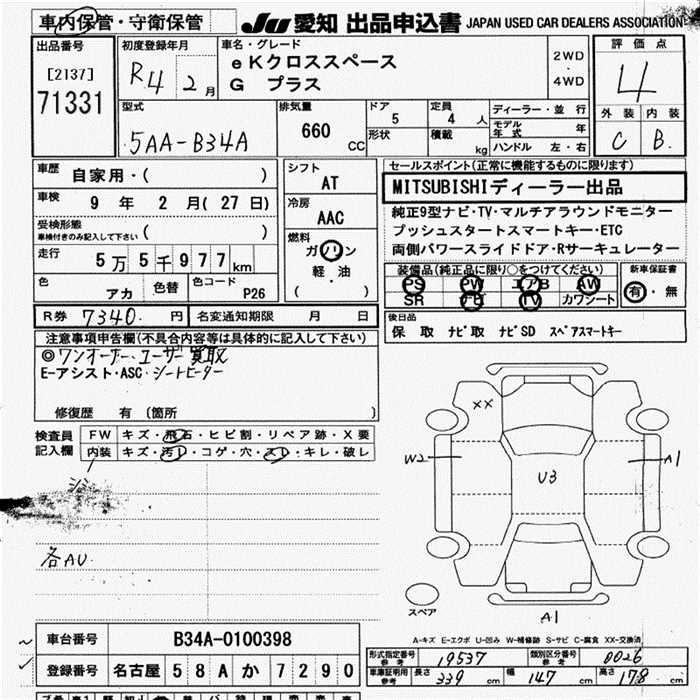 車内保管・守衛保管
JU 愛知 出品申込書 JAPAN USED CAR DEALERS ASSOCIATION
出品番号
[2137]
71331
初度登録年月
R4 2月
車名・グレード
eKクロススペース
G プラス
2WD
・
4WD
評価点
4
外装 内装
C B.
型式
5AA-B34A
排気量
660 CC
ドア
5
形状
定員
4 人
積載
kg
ディーラー・並行
モデル年式 年
ハンドル 左・右
車歴
自家用・( )
車検
9年 2月(27日)
受検形態
車検付きのみ記入して下さい ( )
走行
5万5千977km
色
アカ
色替
色コード
P26
シフト
AT
冷房
AAC
燃料
ガソリン
軽・油
( )
セールスポイント(正常に機能するものに限ります)
MITSUBISHIディーラー出品
純正9型ナビ・TV・マルチアラウンドモニター
プッシュスタートスマートキー・ETC
両側パワースライドドア・Rサーキュレーター
装備品(純正品に限り○をつけてください)
PS PW エアB AW
SR ナビ TV カワシート
新車保証書
有・無
R券 7340.円
名変通知期限 月 日
後日品
保 取 ナビ取 ナビSD スペアスマートキー
注意事項申告欄(不具合内容等は具体的に記入して下さい)
◎ワンオーナー・ユーザー買取
E-アシスト・ASC・シートヒーター
修復歴 有 (箇所 )
検査員
記入欄
FW キズ・飛石・ヒビ割・リペア跡・X要
内装 キズ・汚レ・コゲ・穴・スレ・キレ・破レ
各AU
XX
W2
A1
U3
A1
スペア
A-キズ E-エクボ U-凹み W-補修跡 S-サビ C-腐食 XX-交換済
車台番号
B34A-0100398
登録番号
名古屋 58Aか7290
形式指定番号
参考
19537
類別区分番号
参考
0026
車庫証明用
参考
長さ 339 cm 幅 147 cm 高さ 178 cm